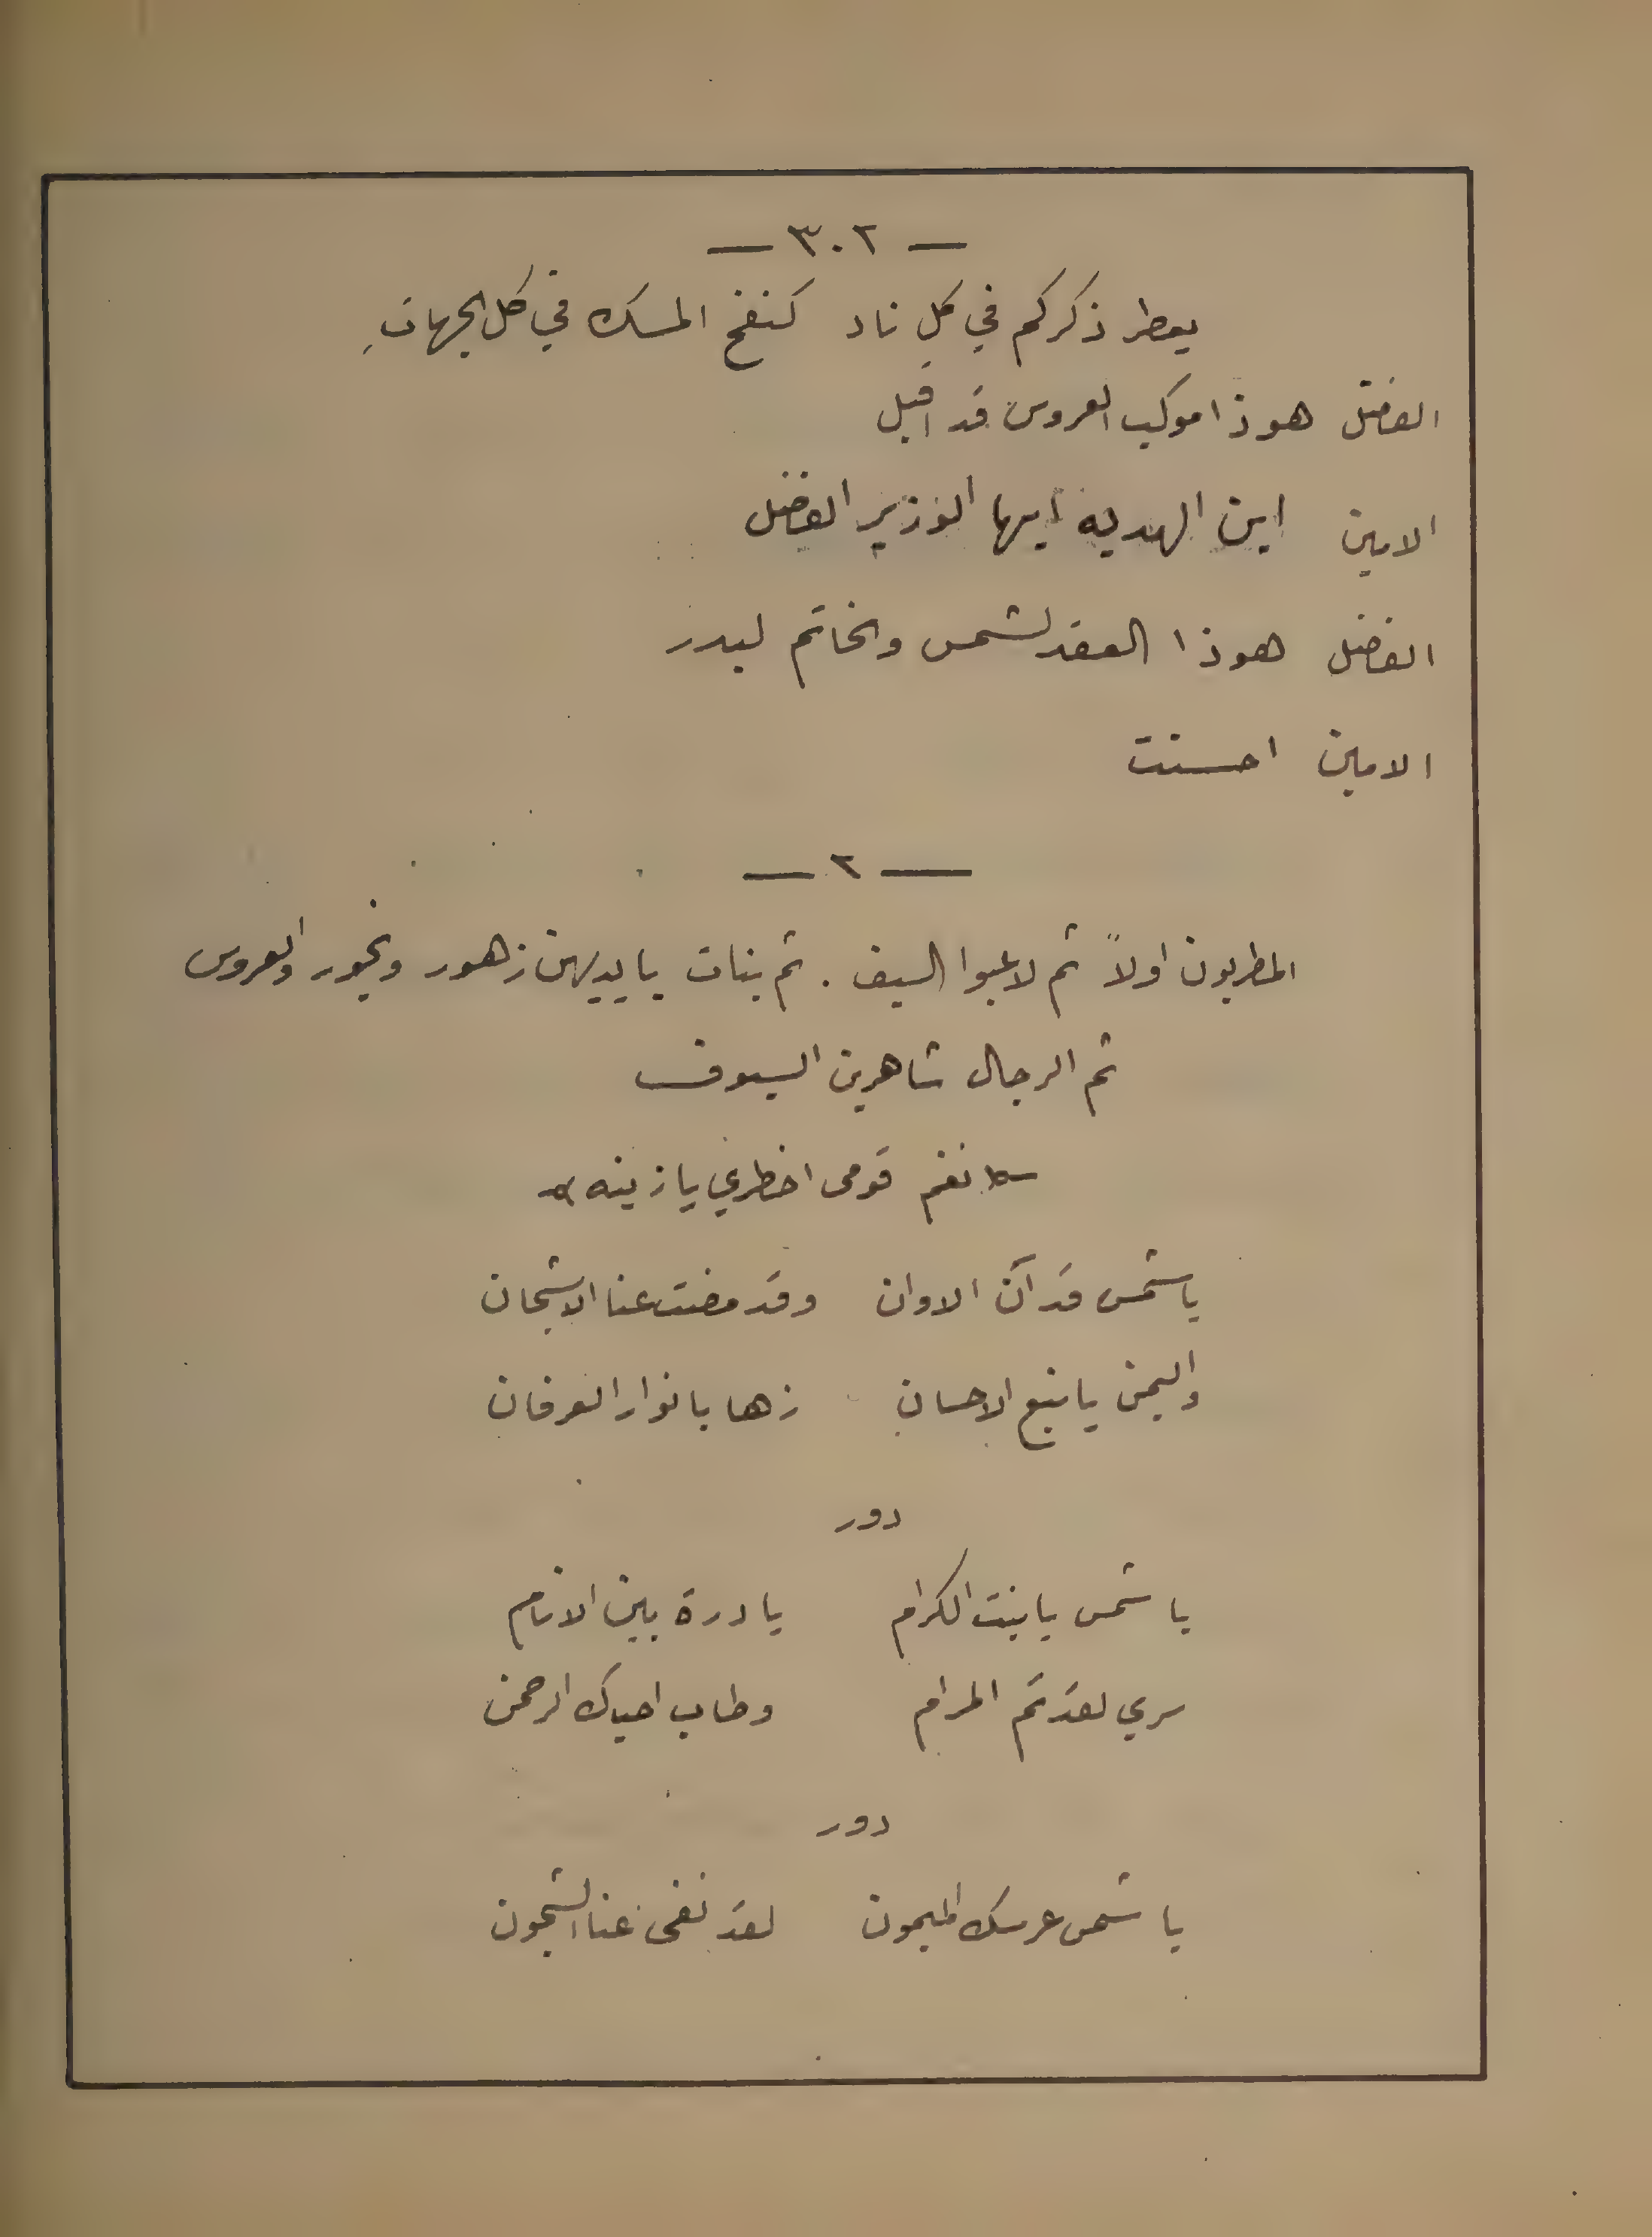 — ٣٠٢ —
يعطر ذكركم في كل ناد كنفح المسك في كل الجهات
الفضل هوذا موكب العروس قد اقبل
الامين اين الهديه ايها الوزير الفضل
الفضل هوذا العقد لشمس والخاتم لبدر
الامين احسنت
— ٢ —
المطربون اولاً ثم لاعبوا السيف . ثم بنات بايديهن زهور وبخور والعروس
ثم الرجال شاهرين السيوف
نغم قومى اخطري يا زينه
يا شمس قد آن الاوان وقد مضت عنا الاشجان
واليمن يا نبع الاحسان زها بانوار العرفان
دور
يا شمس يا بنت الكرام يا درة بين الانام
سري لقد تم المرام وطاب احياك الرحمن
دور
يا شمس عرسك الميمون لقد نفى عنا الشجون